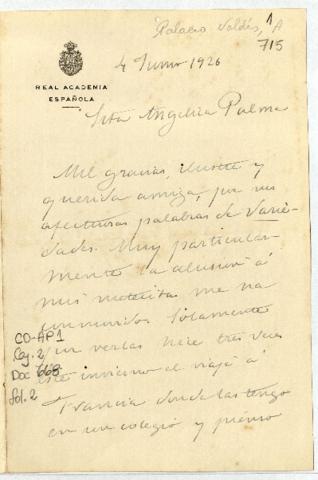 Palacio Valdés, 1 A
715
4 Junio 1926
REAL ACADEMIA
ESPAÑOLA
Srta Angelica Palma
Mil gracias, ilustre y
querida amiga, por sus
afectuosas palabras de Varie-
dades. Muy particular-
mente la alusion á
mis nietecitas me ha
conmovido. Solamente
por verlas hice tres veces
este invierno el viaje á
Francia donde las tengo
en un colegio y pienso
CO-AP1
Caj. 2
Doc 668
fol. 2